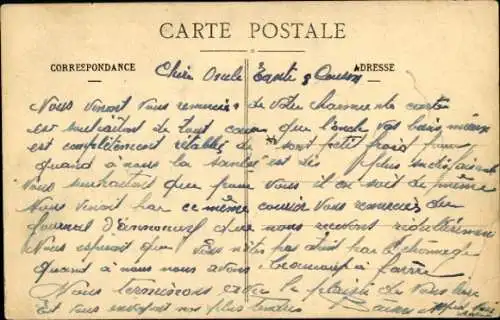 CARTE POSTALE
CORRESPONDANCE
ADRESSE
Chers Oncle Tante & Cousin
Nous venont vous remercier de votre charmante carte
et souhaitont de tout cœur que l'oncle vas bien mieux
est complètement rétabli de son petit froid pour
quand à nous la santé est des plus
Nous souhaitont que pour vous il en soit de même
Nous venont par ce même courier vous remercier du
journal d' que nous recevont
Nous espéront que vous n'êtes pas par le chomage
quant à nous nous avons beaucoup à faire
Nous terminons avec le plaisir de vous lire
Est vous envoyont nos plus tendres Baisers